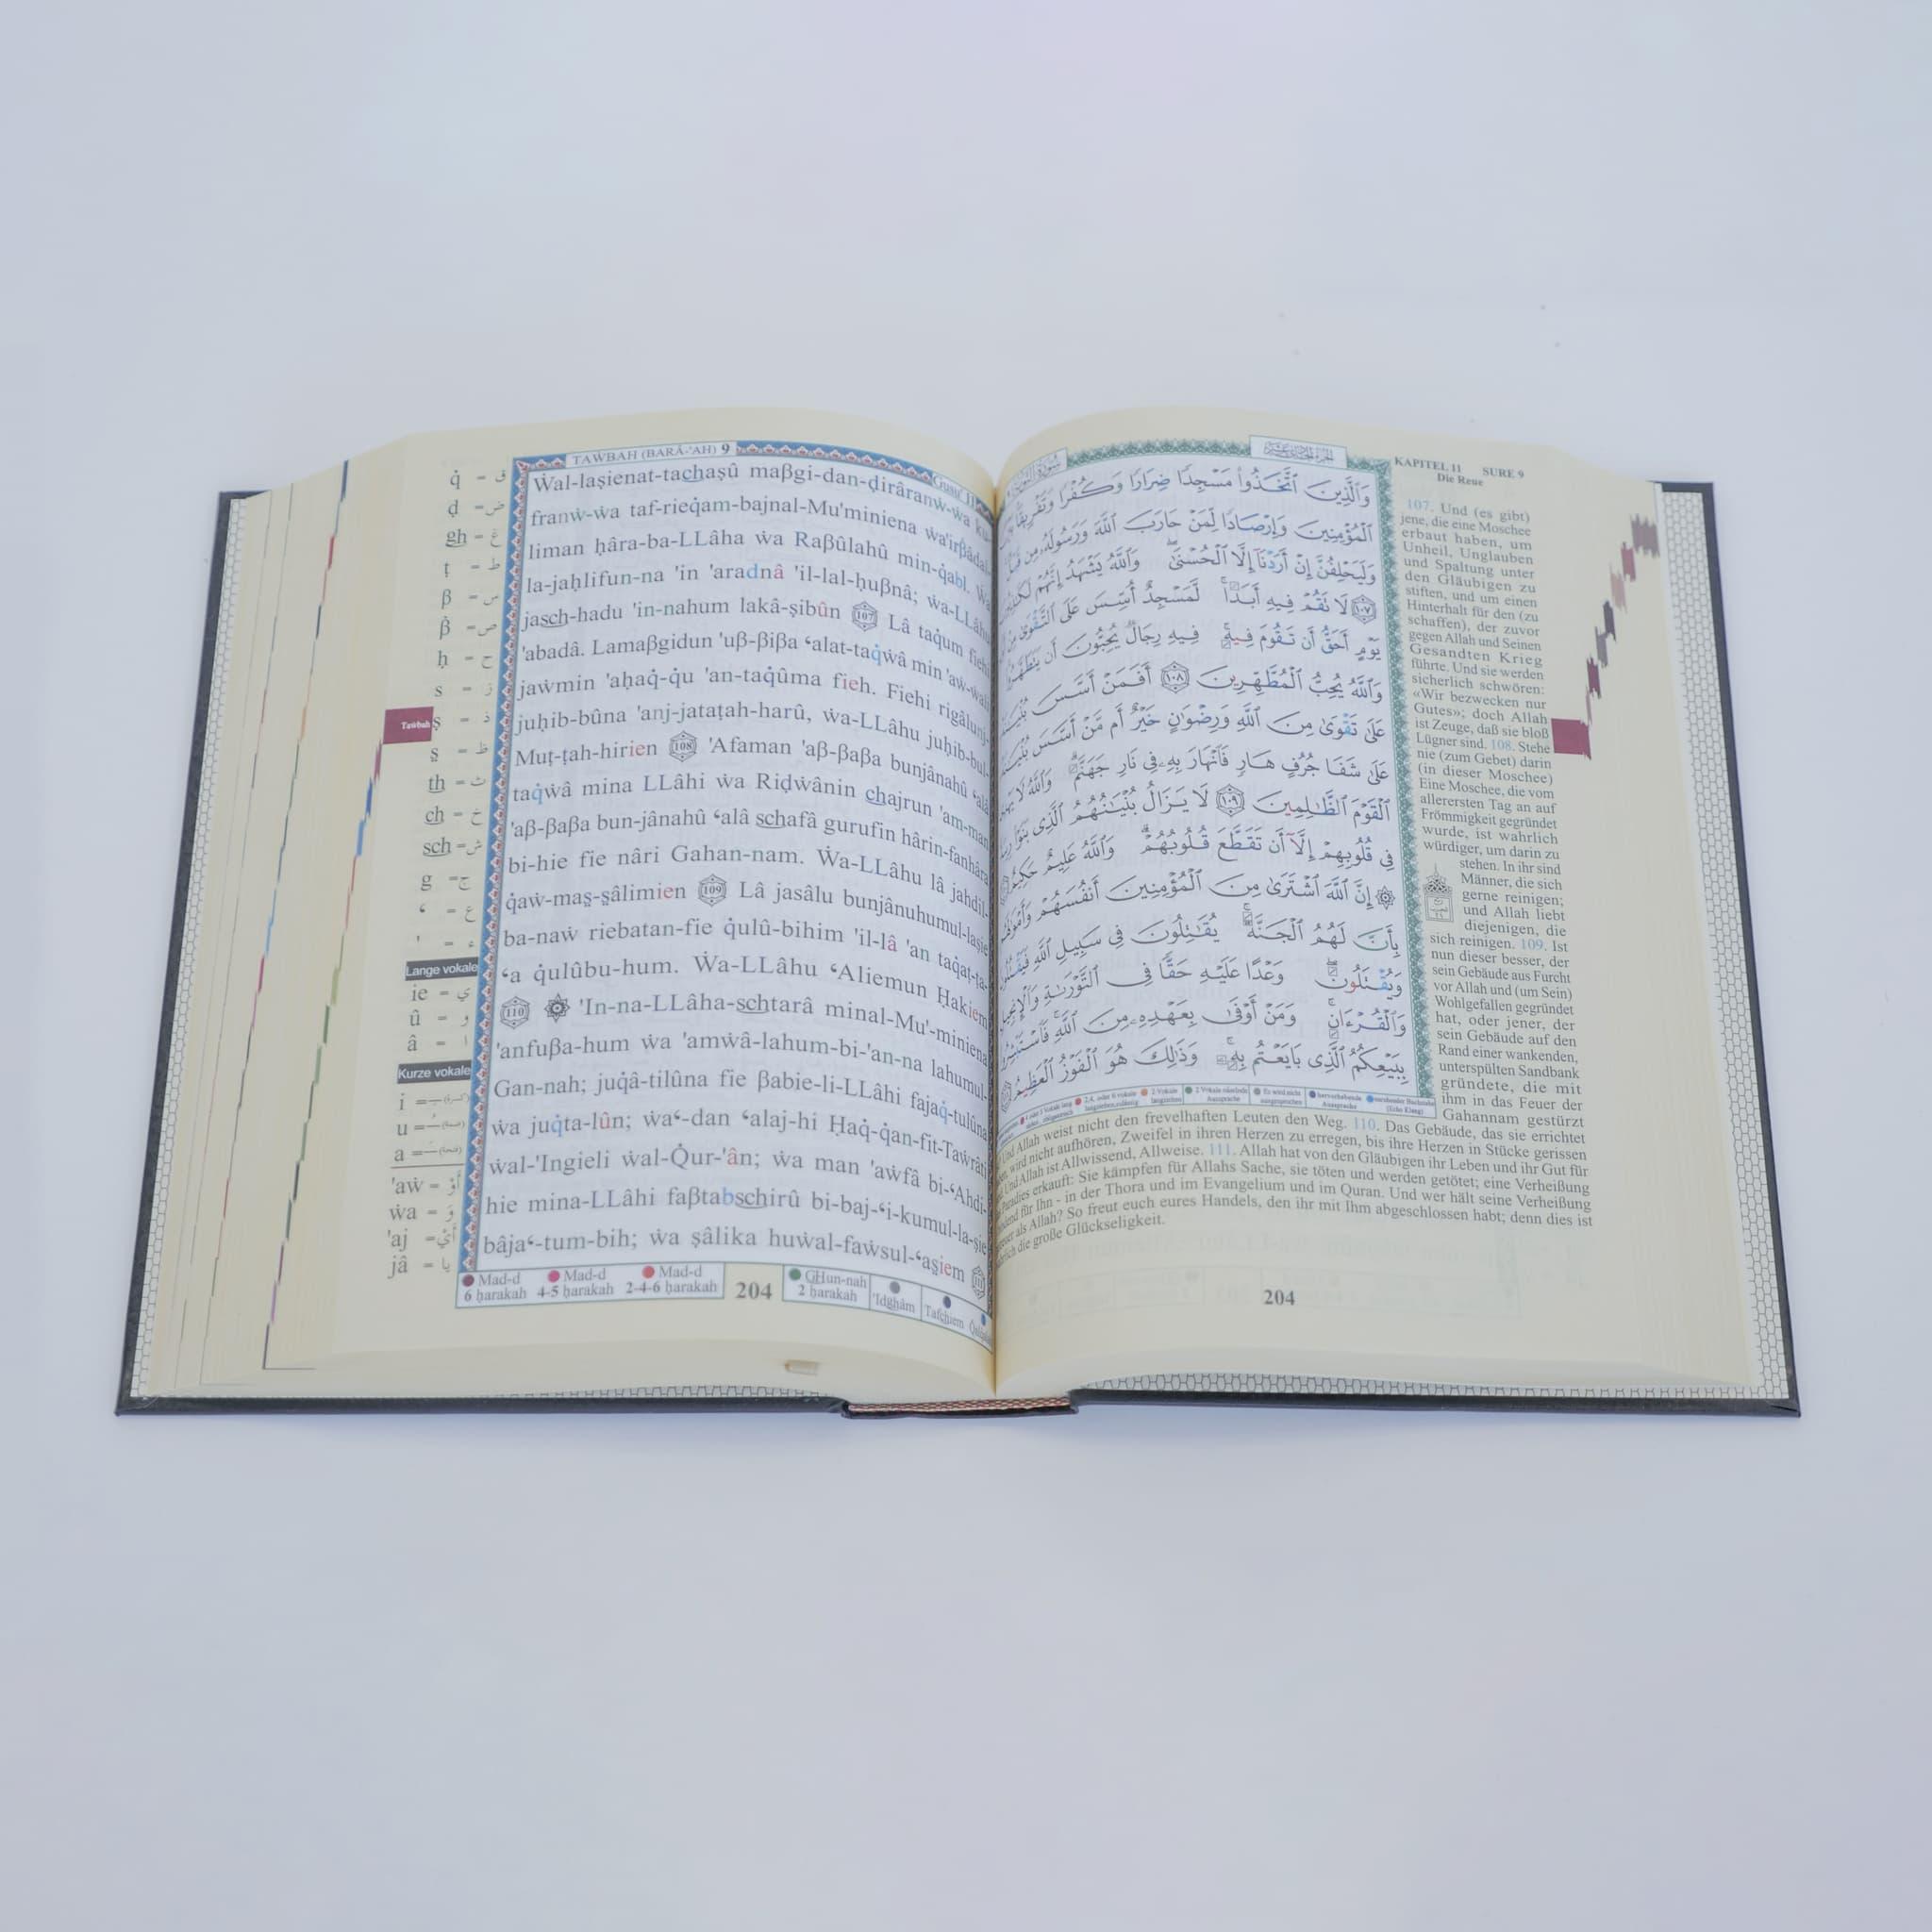 TAWBAH (BARÂ-'AH) 9
ق = q̇
ض = ḍ
غ = gh
ط = ṭ
س = β
ص = β̇
ح = ḥ
ز = s
ذ = ṣ
ظ = s̱
ث = th
خ = ch
ش = sch
ج = g
ع = ‛
ء = '
Lange vokale
ie = ي
û = و
â = ا
Kurze vokale
i =
u =
a =
'aẇ = أَوْ
ẇa = وَ
'aj = أَيْ
jâ = يا
Tawbah
Ẇal-laṣienat-tachaṣû maβgi-dan-ḍirâranẇ-ẇa
franẇ-ẇa taf-rieq̇am-bajnal-Mu'miniena ẇa'irβ̇âdal-
liman ḥâra-ba-LLâha ẇa Raβûlahû min-q̇abl.
la-jaḥlifun-na 'in 'aradnâ 'il-lal-ḥuβnâ; ẇa-LLâhu
jasch-hadu 'in-nahum lakâ-ṣibûn 107 Lâ taq̇um fiehi
'abadâ. Lamaβgidun 'uβ-βiβa ‛alat-taq̇ẇâ min 'aẇ-ẇali
jaẇmin 'aḥaq̇-q̇u 'an-taq̇ûma fieh. Fiehi rigâlunj-
juḥib-bûna 'anj-jataṭah-harû, ẇa-LLâhu juḥib-bul-
Muṭ-ṭah-hirien 108 'Afaman 'aβ-βaβa bunjânahû ‛alâ
taq̇ẇâ mina LLâhi ẇa Riḍẇânin chajrun 'am-man
'aβ-βaβa bun-jânahû ‛alâ schafâ gurufin hârin-fanhâra
bi-hie fie nâri Gahan-nam. Ẇa-LLâhu lâ jahdil-
q̇aẇ-mas̱-s̱âlimien 109 Lâ jasâlu bunjânuhumul-laṣie
ba-naẇ riebatan-fie q̇ulû-bihim 'il-lâ 'an taq̇aṭ-ṭa-
‛a q̇ulûbu-hum. Ẇa-LLâhu ‛Aliemun Ḥakiem
110 'In-na-LLâha-schtarâ minal-Mu'-miniena
'anfuβa-hum ẇa 'amẇâ-lahum-bi-'an-na lahumul-
Gan-nah; juq̇â-tilûna fie βabie-li-LLâhi fajaq̇-tulûna
ẇa juq̇ta-lûn; ẇa‛-dan ‛alaj-hi Ḥaq̇-q̇an-fit-Taẇrâti
ẇal-'Ingieli ẇal-Q̇ur-'ân; ẇa man 'aẇfâ bi-‛Ahdi-
hie mina-LLâhi faβtabschirû bi-baj-‛i-kumul-la-ṣie
bâja‛-tum-bih; ẇa ṣâlika huẇal-faẇsul-‛as̱iem 111
Mad-d
6 ḥarakah
Mad-d
4-5 ḥarakah
Mad-d
2-4-6 ḥarakah
204
GHun-nah
2 ḥarakah
'Idghâm
Tafchiem
وَالَّذِينَ اتَّخَذُوا مَسْجِدًا ضِرَارًا وَكُفْرًا وَتَفْرِيقًا
الْمُؤْمِنِينَ وَإِرْصَادًا لِمَنْ حَارَبَ اللَّهَ وَرَسُولَهُ مِن
وَلَيَحْلِفُنَّ إِنْ أَرَدْنَا إِلَّا الْحُسْنَىٰ وَاللَّهُ يَشْهَدُ إِنَّهُمْ
١٠٧ لَا تَقُمْ فِيهِ أَبَدًا لَمَسْجِدٌ أُسِّسَ عَلَى التَّقْوَىٰ
يَوْمٍ أَحَقُّ أَن تَقُومَ فِيهِ فِيهِ رِجَالٌ يُحِبُّونَ أَن يَتَطَهَّرُوا
وَاللَّهُ يُحِبُّ الْمُطَّهِّرِينَ ١٠٨ أَفَمَنْ أَسَّسَ
عَلَىٰ تَقْوَىٰ مِنَ اللَّهِ وَرِضْوَانٍ خَيْرٌ أَم مَّنْ أَسَّسَ
عَلَىٰ شَفَا جُرُفٍ هَارٍ فَانْهَارَ بِهِ فِي نَارِ جَهَنَّمَ وَاللَّهُ لَا
الْقَوْمَ الظَّالِمِينَ ١٠٩ لَا يَزَالُ بُنْيَانُهُمُ الَّذِي بَنَوْا
فِي قُلُوبِهِمْ إِلَّا أَن تَقَطَّعَ قُلُوبُهُمْ وَاللَّهُ عَلِيمٌ حَكِيمٌ
إِنَّ اللَّهَ اشْتَرَىٰ مِنَ الْمُؤْمِنِينَ أَنفُسَهُمْ
بِأَنَّ لَهُمُ الْجَنَّةَ يُقَاتِلُونَ فِي سَبِيلِ اللَّهِ
وَيُقْتَلُونَ وَعْدًا عَلَيْهِ حَقًّا فِي التَّوْرَاةِ
وَالْقُرْآنِ وَمَنْ أَوْفَىٰ بِعَهْدِهِ مِنَ اللَّهِ
بِبَيْعِكُمُ الَّذِي بَايَعْتُم بِهِ وَذَٰلِكَ هُوَ الْفَوْزُ الْعَظِيمُ
KAPITEL 11 SURE 9
Die Reue
107. Und (es gibt)
jene, die eine Moschee
erbaut haben, um
Unheil, Unglauben
und Spaltung unter
den Gläubigen zu
stiften, und um einen
Hinterhalt für den (zu
schaffen), der zuvor
gegen Allah und Seinen
Gesandten Krieg
führte. Und sie werden
sicherlich schwören:
«Wir bezwecken nur
Gutes»; doch Allah
ist Zeuge, daß sie bloß
Lügner sind. 108. Stehe
nie (zum Gebet) darin
(in dieser Moschee)
Eine Moschee, die vom
allerersten Tag an auf
Frömmigkeit gegründet
wurde, ist wahrlich
würdiger, um darin zu
stehen. In ihr sind
Männer, die sich
gerne reinigen;
und Allah liebt
diejenigen, die
sich reinigen. 109. Ist
nun dieser besser, der
sein Gebäude aus Furcht
vor Allah und (um Sein)
Wohlgefallen gegründet
hat, oder jener, der
sein Gebäude auf den
Rand einer wankenden,
unterspülten Sandbank
gründete, die mit
ihm in das Feuer der
Gahannam gestürzt
Und Allah weist nicht den frevelhaften Leuten den Weg. 110. Das Gebäude, das sie errichtet
wird nicht aufhören, Zweifel in ihren Herzen zu erregen, bis ihre Herzen in Stücke gerissen
Und Allah ist Allwissend, Allweise. 111. Allah hat von den Gläubigen ihr Leben und ihr Gut für
Paradies erkauft: Sie kämpfen für Allahs Sache, sie töten und werden getötet; eine Verheißung
für Ihn - in der Thora und im Evangelium und im Quran. Und wer hält seine Verheißung
als Allah? So freut euch eures Handels, den ihr mit Ihm abgeschlossen habt; denn dies ist
die große Glückseligkeit.
204